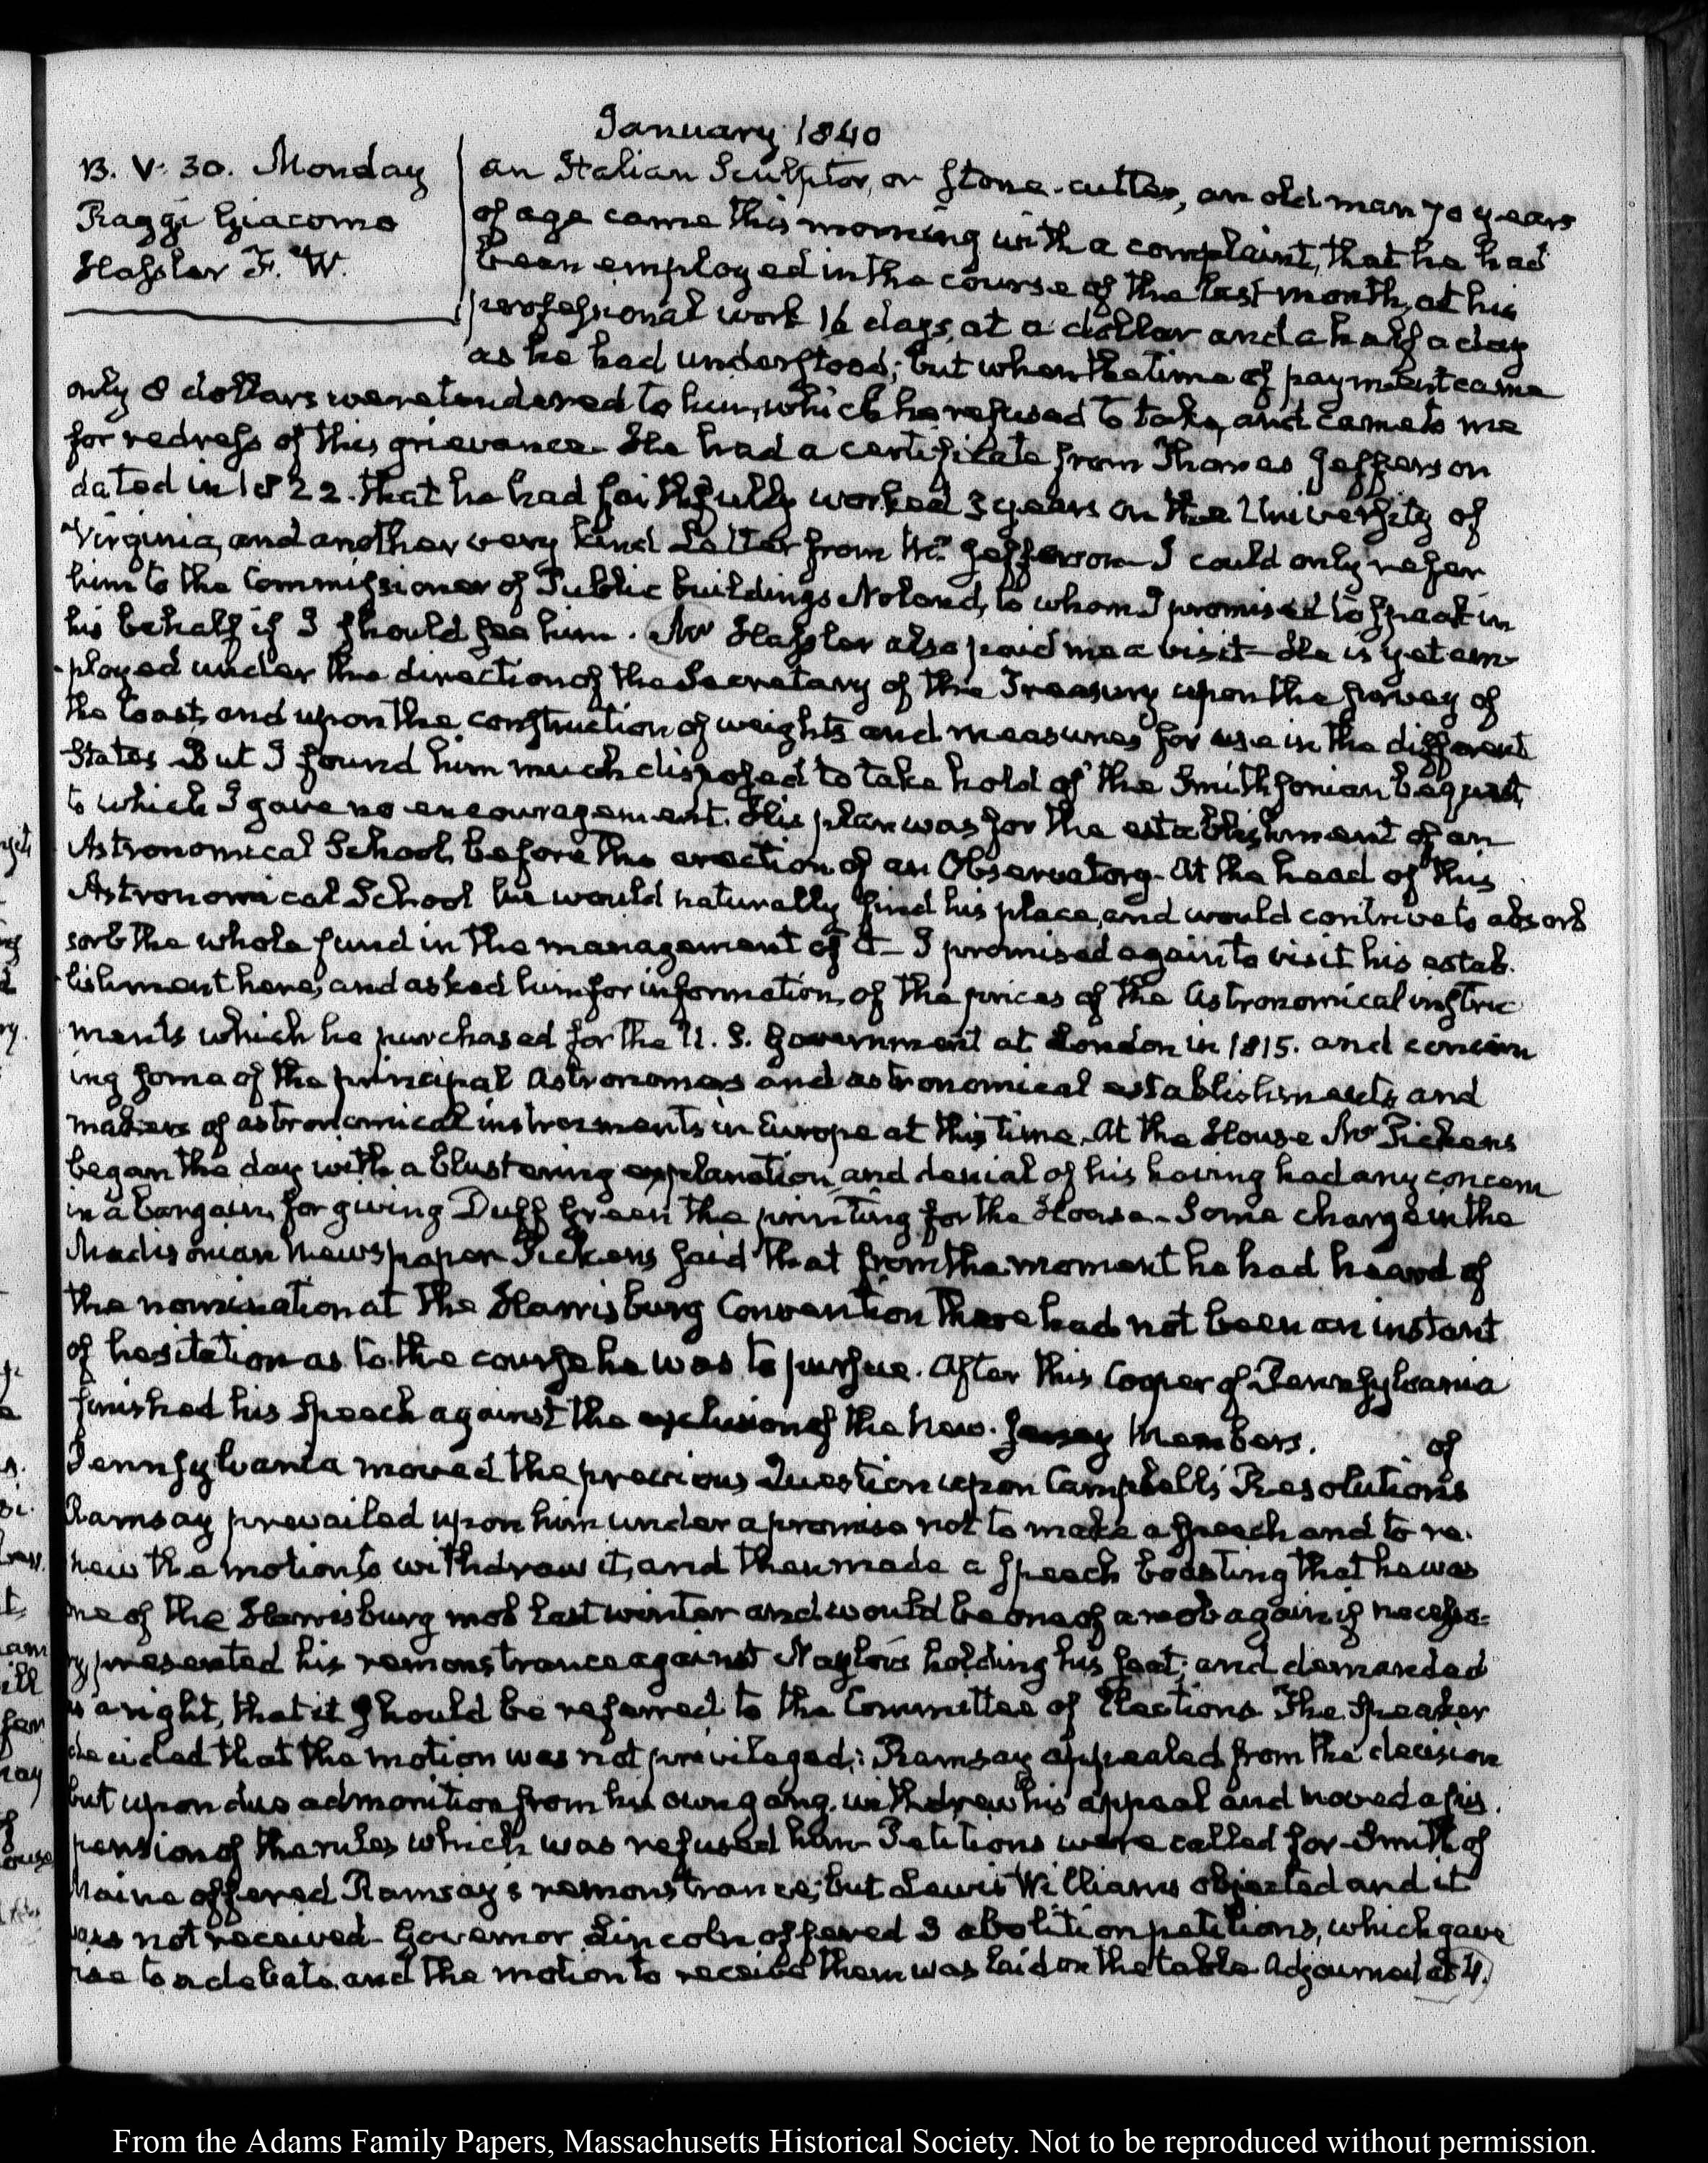 January 1840
13. V. 30. Monday
Raggi Giacomo
Hassler F. W.
an Italian Sculptor, or stone-cutter, an old man 70 years
of age came this morning with a complaint, that he had
been employed in the course of the last month, at his
professional work 16 days, at a dollar and a half a day
as he had understood; but when the time of payment came
only 8 dollars were tendered to him, which he refused to take, and came to me
for redress of this grievance. He had a certificate from Thomas Jefferson
dated in 1822. that he had faithfully worked 3 years on the University of
Virginia, and another very kind Letter from Mr. Jefferson I could only refer
him to the Commissioner of Public buildings Noland, to whom I promised to speak in
his behalf if I should see him. Mr Hassler also paid me a visit— He is yet em-
ployed under the direction of the Secretary of the Treasury upon the survey of
the Coast, and upon the construction of weights and measures for use in the different
States. But I found him much disposed to take hold of the Smithsonian bequest,
to which I gave no encouragement. His plan was for the establishment of an
Astronomical School, before the erection of an Observatory. At the head of this
Astronomical School he would naturally find his place, and would contrive to absorb
sorb the whole fund in the management of it— I promised again to visit his estab-
lishment here, and asked him for information, of the prices of the Astronomical instru
ments which he purchased for the U. S. Government at London in 1815. and concern
ing some of the principal Astronomers and astronomical establishments, and
makers of astronomical instruments in Europe at this time. At the House Mr Pickens
began the day with a blustering explanation, and denial of his having had any concern
in a bargain, for giving Duff Green the printing for the House. Some charge in the
Madisonian Newspaper. Pickens said that from the moment he had heard of
the nomination at the Harrisburg Convention there had not been an instant
of hesitation as to the course he was to pursue. After this Cooper of Pennsylvania
finished his speech against the exclusion of the New-Jersey Members. of
Pennsylvania moved the previous Question upon Campbell's Resolutions
Ramsay prevailed upon him under a promise not to make a speech and to re-
new the motion to withdraw it, and then made a speech boasting that he was
one of the Harrisburg mob last winter and would be one of a mob again if necessa-
ry presented his remonstrance against Naylor's holding his seat; and demanded
as a right, that it should be referred to the Committee of Elections. The Speaker
decided that the motion was not privileged: Ramsay appealed from the decision
but upon due admonition from his own gang, withdrew his appeal and moved a sus-
pension of the rules which was refused him. Petitions were called for— Smith of
Maine offered Ramsay's remonstrance; but Lewis Williams objected and it
was not received. Governor Lincoln offered 3 abolition petitions, which gave
rise to a debate, and the motion to receive them was laid on the table. Adjourned at 4.
From the Adams Family Papers, Massachusetts Historical Society. Not to be reproduced without permission.